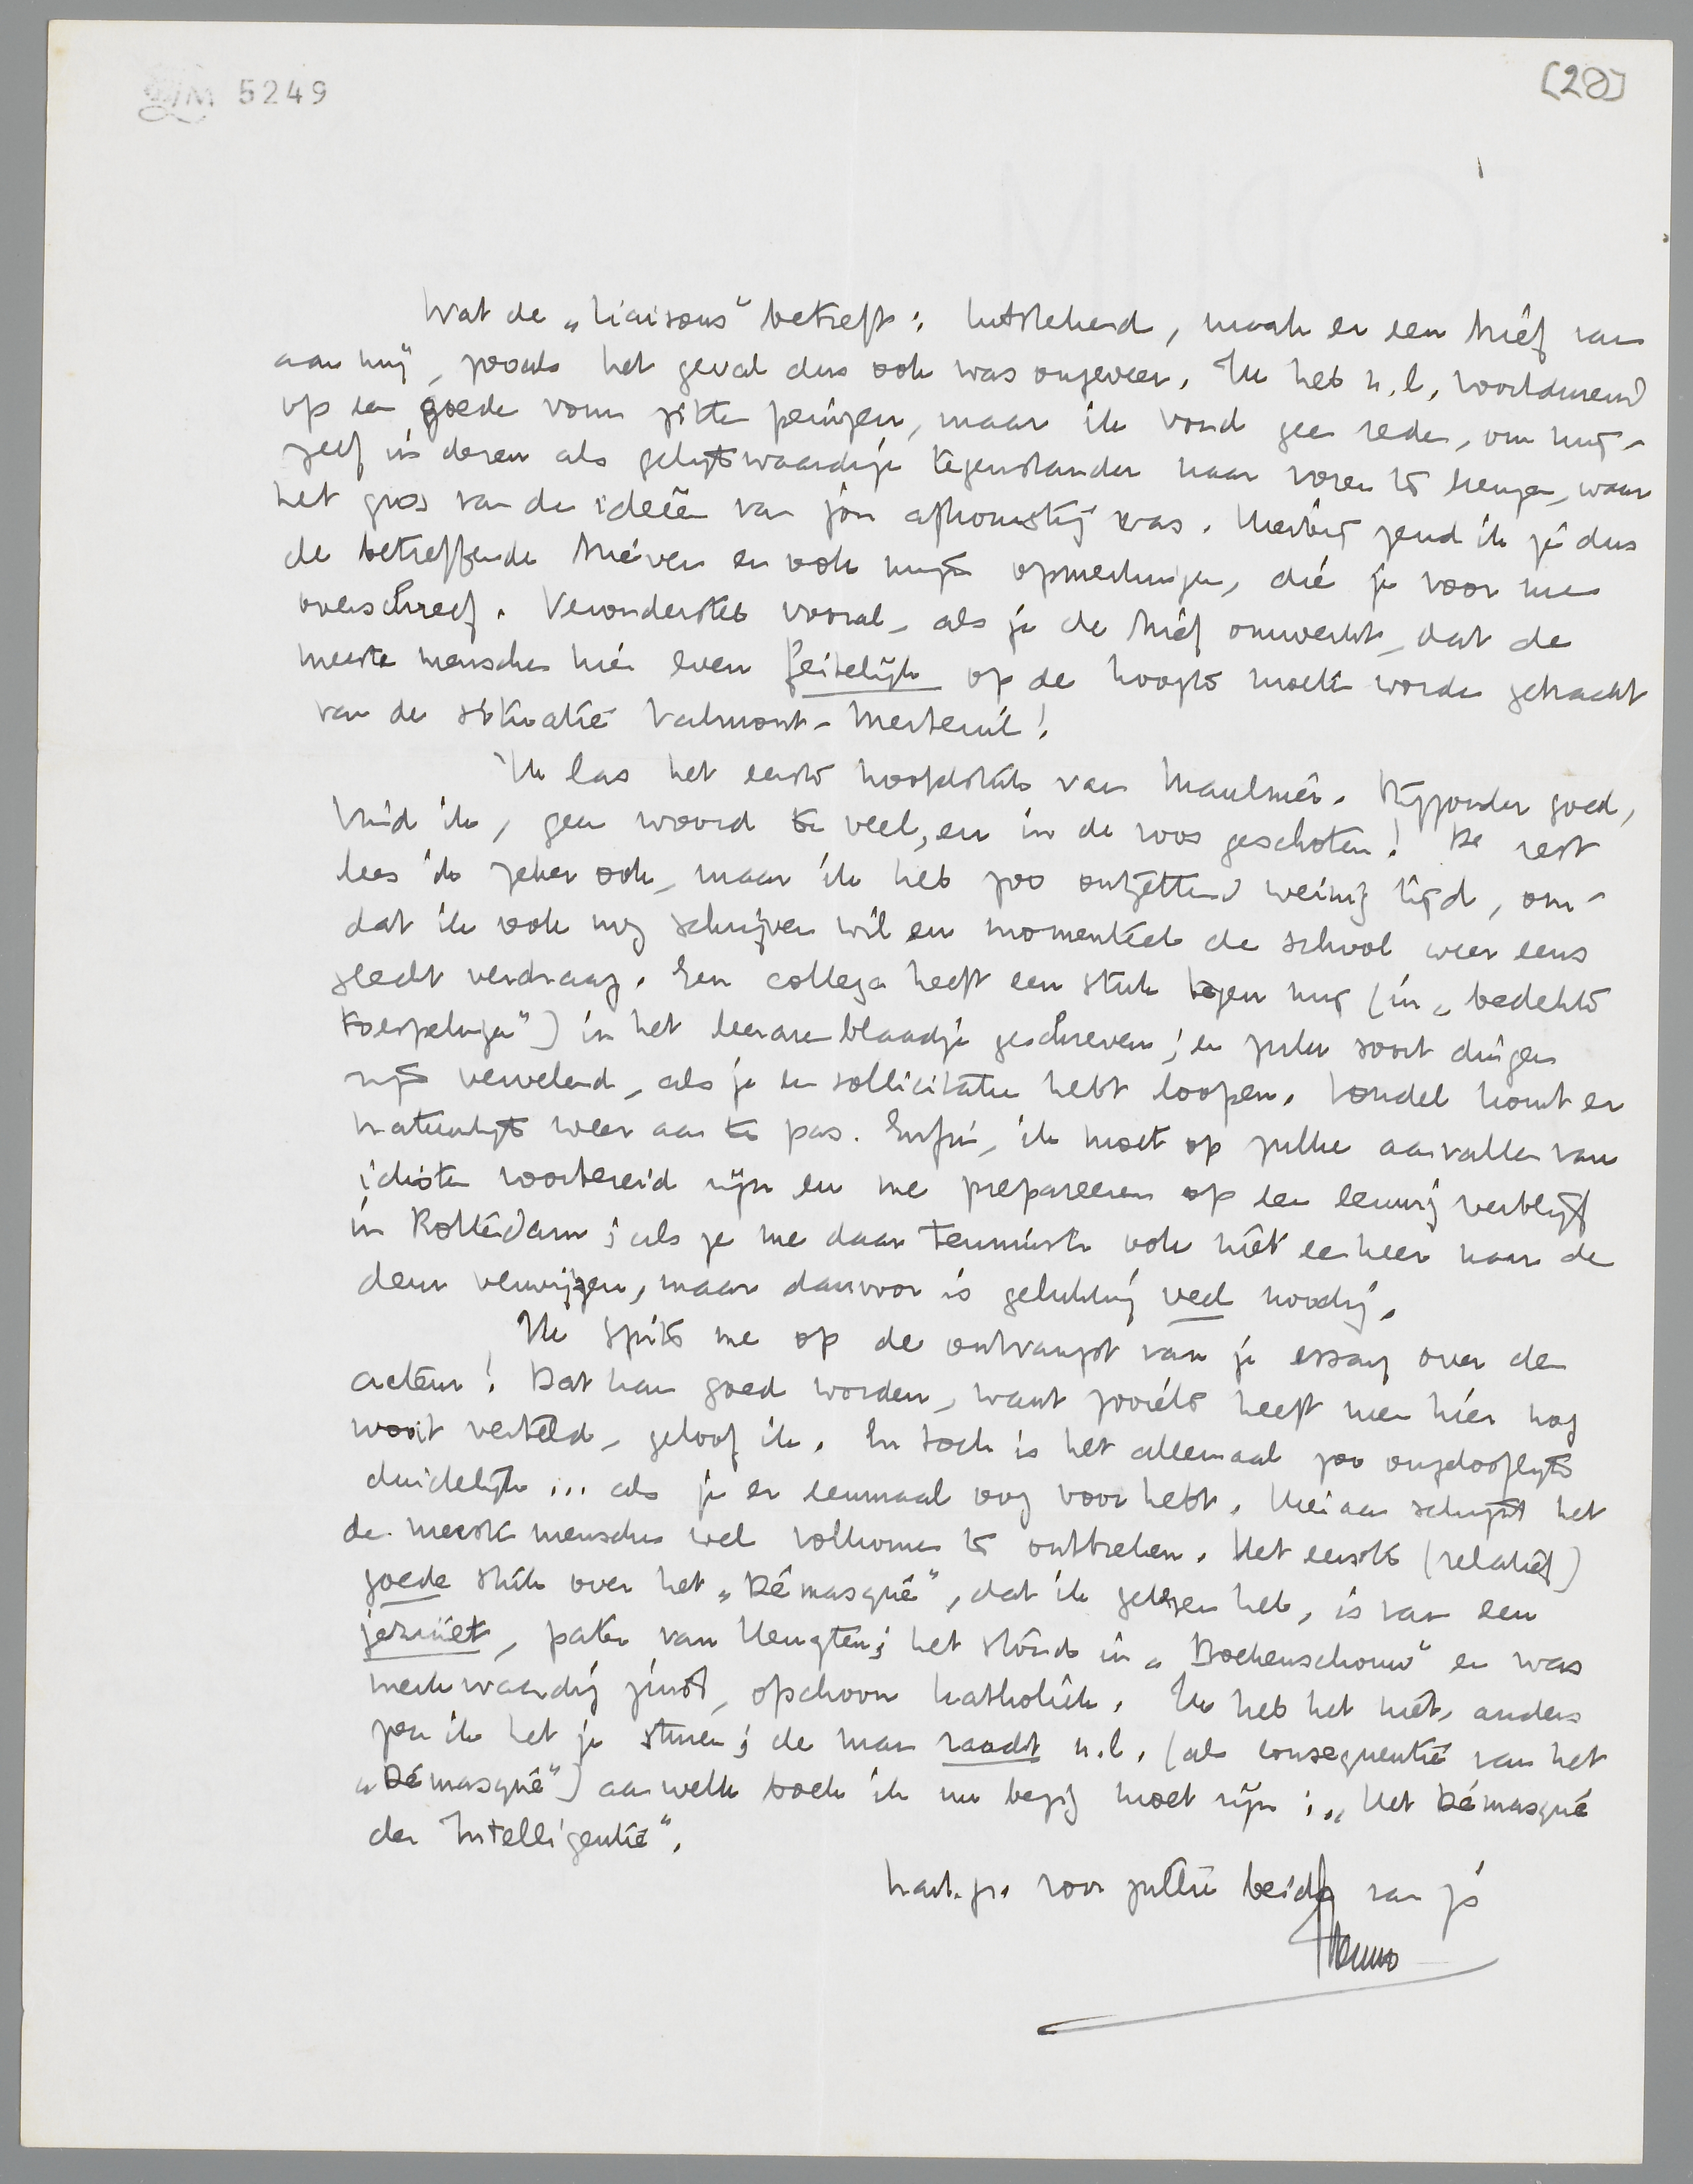 LM 5249
[20]
Wat de „Liaisons” betreft: uitstekend, maak er een brief van
aan mij, zooals het geval dus ook was ongeveer. Ik heb n.l. voortdurend
op een goede vorm zitten peinzen, maar ik vond geen reden, om mij-
zelf in dezen als gelijkwaardige tegenstander naar voren te brengen, waar
het gros van de ideeën van jou afkomstig was. Hierbij zend ik je dus
de betreffende brieven en ook mijn opmerkingen, die je voor me
overschreef. Veronderstel vooral, als je de brief omwerkt, dat de
meeste menschen hier even feitelijk op de hoogte moeten worden gebracht
van de situatie Valmont-Merteuil!
Ik las het eerste hoofdstuk van Maulnier. Bijzonder goed,
vind ik, geen woord te veel, en in de roos geschoten! De rest
lees ik zeker ook, maar ik heb zoo ontzettend weinig tijd, om-
dat ik ook nog schrijven wil en momenteel de school weer eens
slecht verdraag. Een collega heeft een stuk tegen mij (in „bedekte
toespelingen”) in het leerarenblaadje geschreven; en zulke soort dingen
zijn vervelend, als je een sollicitatie hebt loopen. Vondel komt er
natuurlijk weer aan te pas. Enfin, ik moet op zulke aanvallen van
idioten voorbereid zijn en me prepareeren op een eeuwig verblijf
in Rotterdam; als ze me daar tenminste ook niet een keer naar de
deur verwijzen, maar daarvoor is gelukkig veel noodig.
Ik spits me op de ontvangst van je essay over den
acteur! Dat kan goed worden, want zooiets heeft men hier nog
nooit verteld, geloof ik. En toch is het allemaal zoo ongelooflijk
duidelijk... als je er eenmaal oog voor hebt. Hieraan schijnt het
de meeste menschen wel volkomen te ontbreken. Het eerste (relatief)
goede stuk over het „Démasqué”, dat ik gelezen heb, is van een
jezuïet, pater van Heugten; het stond in „Boekenschouw” en was
merkwaardig juist, ofschoon katholiek. Ik heb het niet, anders
zou ik het je sturen; de man raadt n.l. (als consequentie van het
„Démasqué”) aan welk boek ik nu bezig moet zijn: „Het Démasqué
der Intelligentie”.
hart. gr. voor jullie beiden van je
Menno